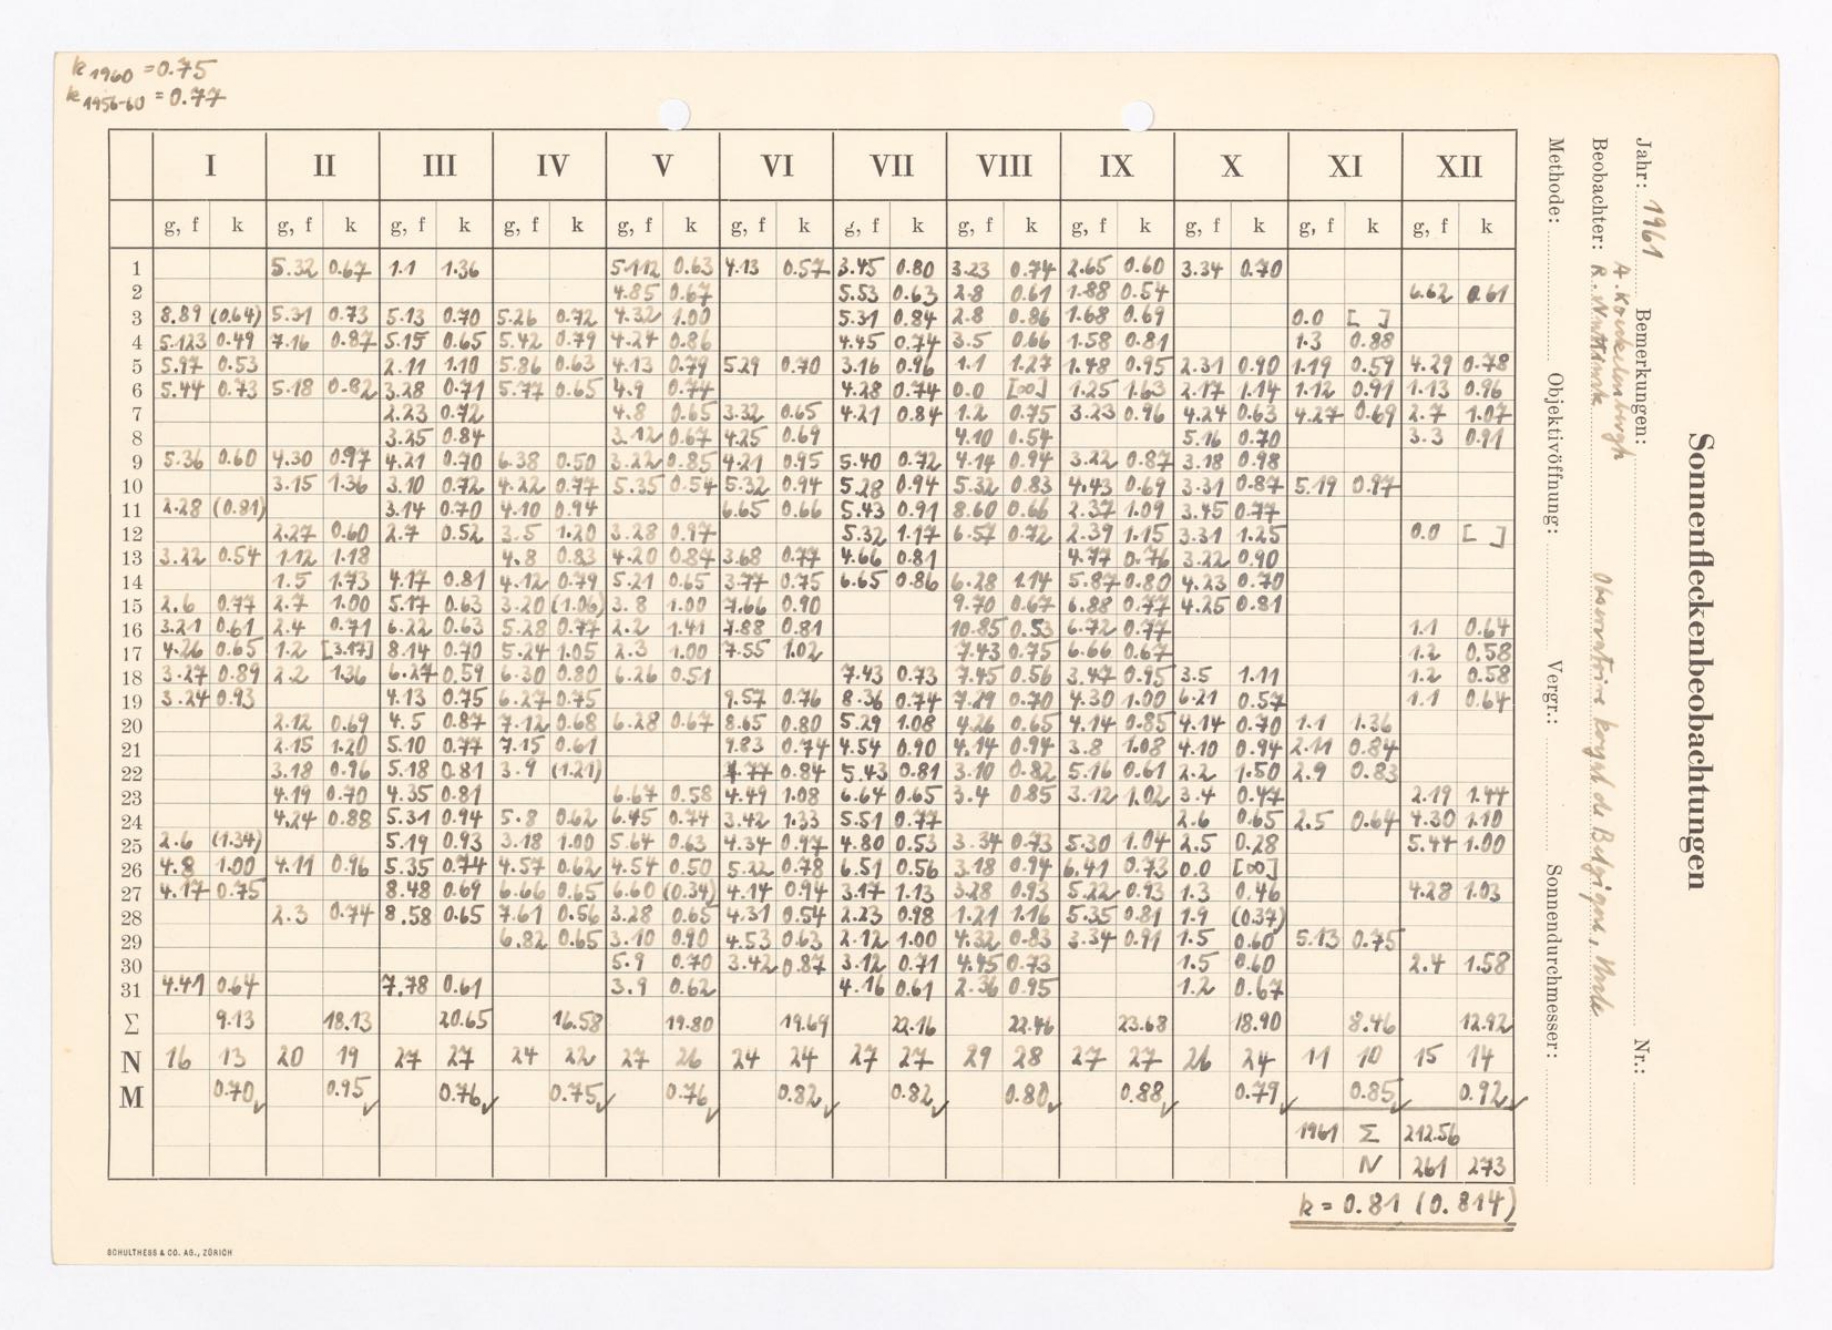 k 1960 = 0.75
k 1956-60 = 0.77
I II III IV V VI VII VIII IX X XI XII
g, f k g, f k g, f k g, f k g, f k g, f k g, f k g, f k g, f k g, f k g, f k g, f k
1 5.32 0.67 1.1 1.36 5.112 0.63 4.13 0.57 3.45 0.80 3.23 0.74 2.65 0.60 3.34 0.70
2 4.85 0.67 5.53 0.63 2.8 0.61 1.88 0.54 6.62 0.61
3 8.89 (0.64) 5.31 0.73 5.13 0.70 5.26 0.72 4.32 1.00 5.31 0.84 2.8 0.86 1.68 0.69 0.0 [ ]
4 5.123 0.49 7.16 0.87 5.15 0.65 5.42 0.79 4.24 0.86 4.45 0.74 3.5 0.66 1.58 0.81 1.3 0.88
5 5.97 0.53 2.11 1.10 5.86 0.63 4.13 0.79 5.29 0.70 3.16 0.96 1.1 1.27 1.48 0.95 2.31 0.90 1.19 0.59 4.29 0.78
6 5.44 0.73 5.18 0.82 3.28 0.71 5.77 0.65 4.9 0.74 4.28 0.74 0.0 [∞] 1.25 1.63 2.17 1.14 1.12 0.91 1.13 0.96
7 2.23 0.72 4.8 0.65 3.32 0.65 4.21 0.84 1.2 0.75 3.23 0.96 4.24 0.63 4.27 0.69 2.7 1.07
8 3.25 0.84 3.12 0.67 4.25 0.69 4.10 0.54 5.16 0.70 3.3 0.91
9 5.36 0.60 4.30 0.97 4.21 0.70 6.38 0.50 3.22 0.85 4.21 0.95 5.40 0.72 4.14 0.94 3.22 0.87 3.18 0.98
10 3.15 1.36 3.10 0.72 4.22 0.77 5.35 0.54 5.32 0.94 5.28 0.94 5.32 0.83 4.43 0.69 3.31 0.87 5.19 0.97
11 2.28 (0.81) 3.14 0.70 4.10 0.94 6.65 0.66 5.43 0.91 8.60 0.66 2.37 1.09 3.45 0.77
12 2.27 0.60 2.7 0.52 3.5 1.20 3.28 0.97 5.32 1.17 6.57 0.72 2.39 1.15 3.31 1.25 0.0 [ ]
13 3.22 0.54 1.12 1.18 4.8 0.83 4.20 0.87 3.68 0.77 4.66 0.81 4.77 0.76 3.22 0.90
14 1.5 1.73 4.17 0.81 4.12 0.79 5.21 0.65 3.77 0.75 6.65 0.86 6.28 1.14 5.87 0.80 4.23 0.70
15 2.6 0.77 2.7 1.00 5.17 0.63 3.20 (1.06) 3.8 1.00 7.66 0.90 9.70 0.67 6.88 0.77 4.25 0.81
16 3.21 0.61 2.4 0.71 6.22 0.63 5.28 0.77 2.2 1.41 7.88 0.81 10.85 0.53 6.72 0.77 1.1 0.64
17 4.26 0.65 1.2 [3.17] 8.14 0.70 5.24 1.05 2.3 1.00 7.55 1.02 7.43 0.75 6.66 0.67 1.2 0.58
18 3.27 0.89 2.2 1.36 6.27 0.59 6.30 0.80 6.26 0.51 7.43 0.73 7.45 0.56 3.47 0.95 3.5 1.11 1.2 0.58
19 3.24 0.93 4.13 0.75 6.27 0.75 9.57 0.76 8.36 0.74 7.29 0.70 4.30 1.00 6.21 0.57 1.1 0.64
20 2.12 0.69 4.5 0.87 7.12 0.68 6.28 0.67 8.65 0.80 5.29 1.08 4.26 0.65 4.14 0.85 4.14 0.70 1.1 1.36
21 2.15 1.20 5.10 0.77 7.15 0.61 9.83 0.74 4.54 0.90 4.14 0.94 3.8 1.08 4.10 0.94 2.11 0.84
22 3.18 0.96 5.18 0.81 3.9 (1.21) 0.84 5.43 0.81 3.10 0.82 5.16 0.61 2.2 1.50 2.9 0.83
23 4.19 0.70 4.35 0.81 6.67 0.58 4.49 1.08 6.64 0.65 3.4 0.85 3.12 1.02 3.4 0.47 2.19 1.44
24 4.24 0.88 5.31 0.94 5.8 0.62 6.45 0.74 3.42 1.33 5.51 0.77 2.6 0.65 2.5 0.64 4.30 1.10
25 2.6 (1.34) 5.19 0.93 3.18 1.00 5.64 0.63 4.34 0.97 4.80 0.53 3.34 0.73 5.30 1.04 2.5 0.28 5.44 1.00
26 4.8 1.00 4.11 0.96 5.35 0.74 4.57 0.62 4.54 0.50 5.22 0.78 6.51 0.56 3.18 0.94 6.41 0.73 0.0 [∞]
27 4.17 0.75 8.48 0.69 6.66 0.65 6.60 (0.34) 4.14 0.94 3.17 1.13 3.28 0.93 5.22 0.93 1.3 0.46 4.28 1.03
28 2.3 0.74 8.58 0.65 7.61 0.56 3.28 0.65 4.31 0.54 2.23 0.98 1.21 1.16 5.35 0.81 1.9 (0.37)
29 6.82 0.65 3.10 0.90 4.53 0.63 2.12 1.00 4.32 0.83 3.34 0.91 1.5 0.60 5.13 0.75
30 5.9 0.70 3.42 0.87 3.12 0.71 4.45 0.73 1.5 0.60 2.4 1.58
31 4.41 0.64 7.78 0.61 3.9 0.62 4.16 0.61 2.36 0.95 1.2 0.67
Σ 9.13 18.13 20.65 16.58 19.80 19.69 22.16 22.46 23.68 18.90 8.46 12.92
N 16 13 20 19 27 27 24 22 27 26 24 24 27 27 29 28 27 27 26 24 11 10 15 14
M 0.70 0.95 0.76 0.75 0.76 0.82 0.82 0.80 0.88 0.79 0.85 0.92
1961 Σ 212.56
N 261 273
k = 0.81 (0.814)
SCHULTHESS & CO. AG., ZÜRICH
Sonnenfleckenbeobachtungen
Jahr: 1961 Bemerkungen: Nr.:
A. Koeckelenbergh
Beobachter: R. Observatoire Royal de Belgique, Uccle
Methode: Objektivöffnung: Vergr.: Sonnendurchmesser: